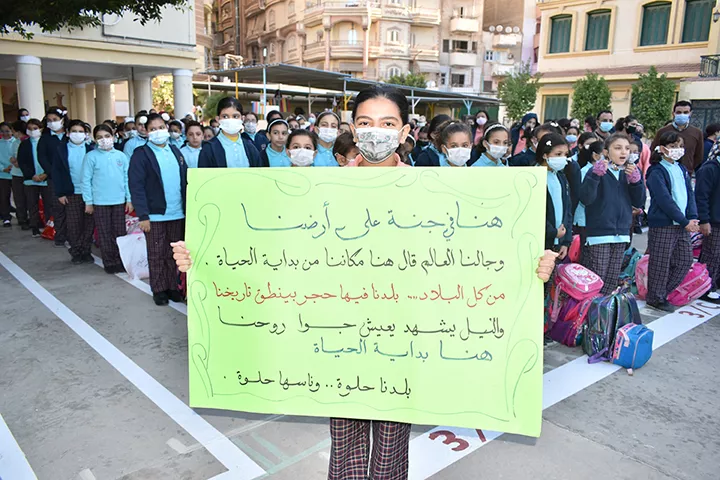 هنا في جنة على أرضنا
وجالنا العالم قال هنا مكاننا من بداية الحياة .
من كل البلاد ... بلدنا فيها حجر بينطق تاريخنا
والنيل يشهد يعيش جوا روحنا
هنا بداية الحياة
بلدنا حلوة .. وناسها حلوة .